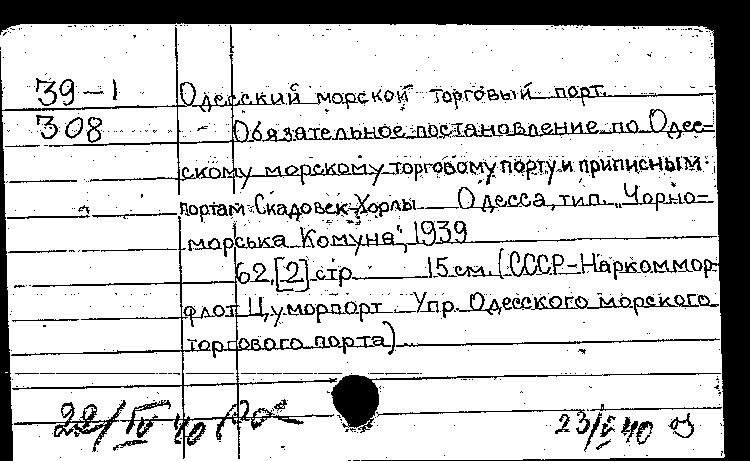 39-1 Одесский морской торговый порт.
308 Обязательное постановление по Одес-
скому морскому торговому порту и приписным
портам Скадовск-Хорлы Одесса, тип. „Чорно-
морська Комуна", 1939
62,[2] стр. 15 см. (СССР-Наркоммор-
флот Цуморпорт. Упр. Одесского морского
торгового порта)
22/IV 40 23/V 40